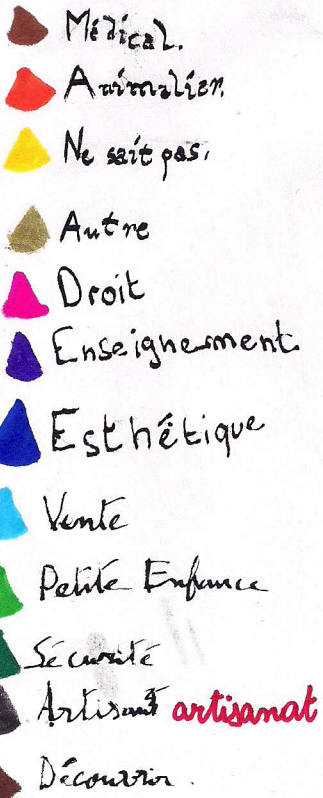 Médical.
Animalier.
Ne sait pas.
Autre
Droit
Enseignement.
Esthétique
Vente
Petite Enfance
Sécurité
Artisanat artisanat
Découvrir.